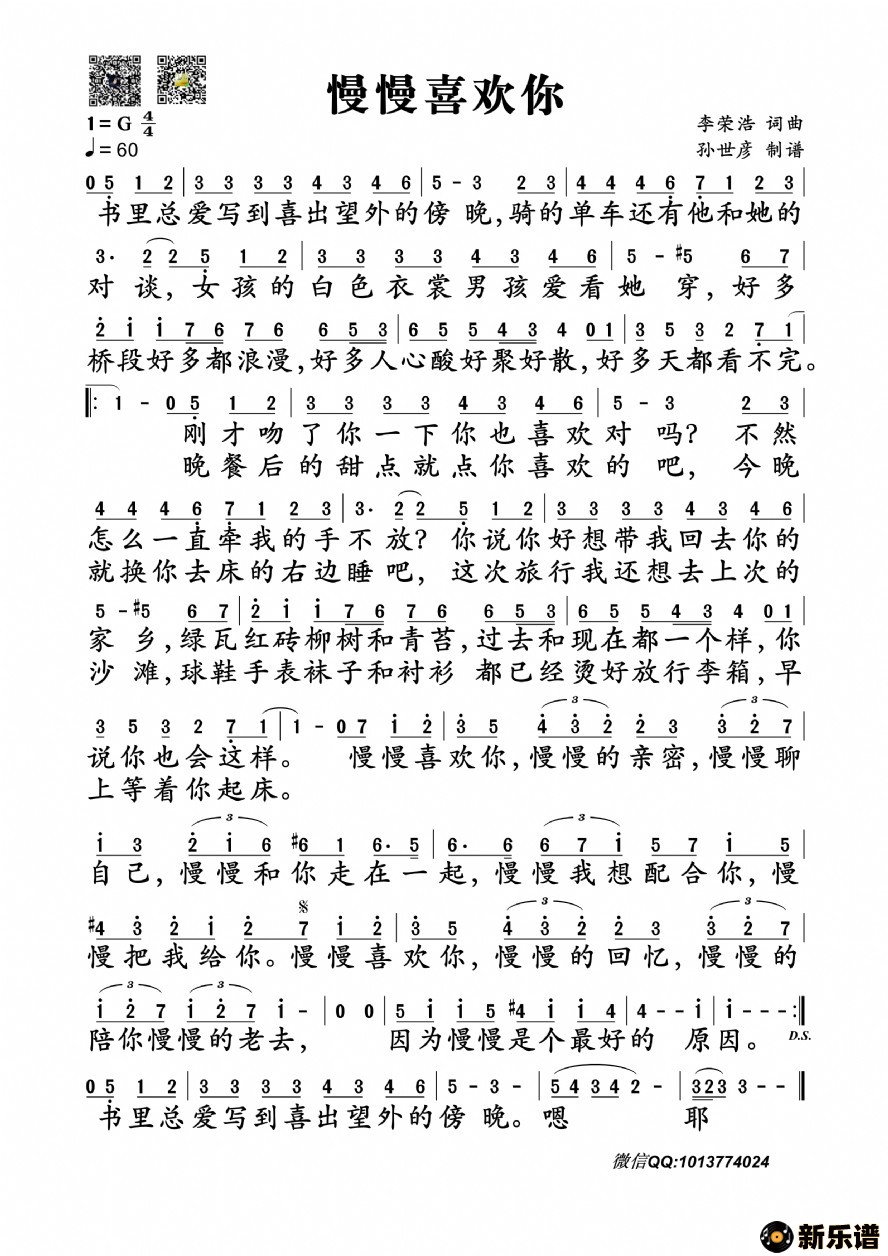 慢慢喜欢你
1=G 4/4
♩=60
李荣浩 词曲
孙世彦 制谱
0 5 1 2 | 3 3 3 3 4 3 4 6 | 5 - 3 2 3 | 4 4 4 6 7 1 2 3 |
书里总爱写到喜出望外的傍 晚,骑的单车还有他和她的
3· 2 2 5 1 2 | 3 3 3 3 4 3 4 6 | 5 - #5 6 7 |
对 谈,女孩的白色衣裳男孩爱看她 穿,好多
2 1 1 7 6 7 6 6 5 3 | 6 5 5 4 3 4 0 1 | 3 5 3 2 7 1 |
桥段好多都浪漫,好多人心酸好聚好散,好多天都看不完。
‖: 1 - 0 5 1 2 | 3 3 3 3 4 3 4 6 | 5 - 3 2 3 |
刚才吻了你一下你也喜欢对 吗? 不然
晚餐后的甜点就点你喜欢的 吧,今晚
4 4 4 6 7 1 2 3 | 3· 2 2 5 1 2 | 3 3 3 3 4 3 4 6 |
怎么一直牵我的手不 放? 你说你好想带我回去你的
就换你去床的右边睡 吧, 这次旅行我还想去上次的
5 - #5 6 7 | 2 1 1 7 6 7 6 6 5 3 | 6 5 5 4 3 4 0 1 |
家 乡,绿瓦红砖柳树和青苔,过去和现在都一个样,你
沙 滩,球鞋手表袜子和衬衫 都已经烫好放行李箱,早
3 5 3 2 7 1 | 1 - 0 7 1 2 | 3 5 4 3 2 2 3 3 2 7 |
说你也会这样。 慢慢喜欢你,慢慢的亲密,慢慢聊
上等着你起床。
1 3 2 1 6 #6 1 6· 5 | 6· 6 6 7 1 5 7 1 5 |
自己,慢慢和你走在一起,慢慢我想配合你,慢
#4 3 2 1 2 7 1 2 | 3 5 4 3 2 2 3 3 2 7 |
慢把我给你。慢慢喜欢你,慢慢的回忆,慢慢的
1 2 7 1 2 7 1 - | 0 0 | 5 1 1 5 #4 1 1 4 | 4 - - 1 | 1 - - - :‖
陪你慢慢的老去, 因为慢慢是个最好的 原因。 D.S.
0 5 1 2 | 3 3 3 3 4 3 4 6 | 5 - 3 - | 5 4 3 4 2 - | 3 2 3 3 - - ‖
书里总爱写到喜出望外的傍 晚。嗯 耶
微信QQ:1013774024
新乐谱